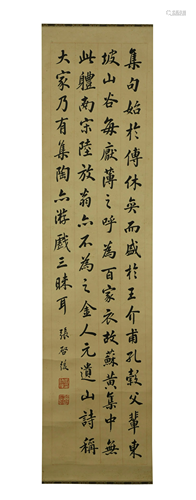 集句始於傅休奕而盛於王介甫孔毅父輩東
坡山谷每厭薄之呼為百家衣故蘇黃集中無
此體南宋陸放翁亦不為之金人元遺山詩稱
大家乃有集陶亦游戲三昧耳 張啓後